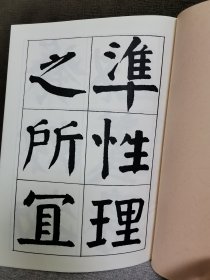 準性理
之所冝